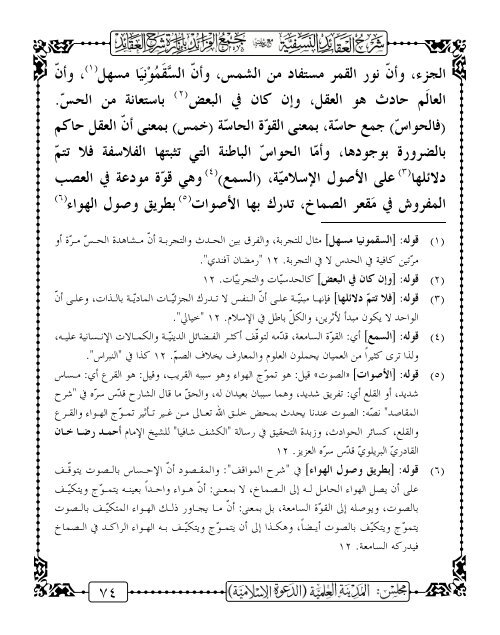 شرح العقائد النسفية مع جمع الفرائد بإنارة شرح العقائد
الجزء، وأنّ نور القمر مستفاد من الشمس، وأنّ السَّقَمُوْنِيَا مسهل(١)، وأنّ
العالَم حادث هو العقل، وإن كان في البعض(٢) باستعانة من الحسّ.
(فالحواسّ) جمع حاسّة، بمعنى القوّة الحاسّة (خمس) بمعنى أنّ العقل حاكم
بالضرورة بوجودها، وأمّا الحواسّ الباطنة التي تثبتها الفلاسفة فلا تتمّ
دلائلها(٣) على الأصول الإسلاميّة، (السمع)(٤) وهي قوّة مودعة في العصب
المفروش في مَقعر الصماخ، تدرك بها الأصوات(٥) بطريق وصول الهواء(٦)
(١) قوله: [السقمونيا مسهل] مثال للتجربة، والفرق بين الحدث والتجربة أنّ مشاهدة الحسّ مرّة أو
مرّتين كافية في الحدس لا في التجربة. ١٢ "رمضان آفندي".
(٢) قوله: [وإن كان في البعض] كالحدسيّات والتجربيّات. ١٢
(٣) قوله: [فلا تتمّ دلائلها] فإنها مبنيّة على أنّ النفس لا تدرك الجزئيّات الماديّة بالذات، وعلى أنّ
الواحد لا يكون مبدأ لأثرين، والكلّ باطل في الإسلام. ١٢ "خيالي".
(٤) قوله: [السمع] أي: القوّة السامعة، قدّمه لتوقّف أكثر الفضائل الدينيّة والكمالات الإنسانية عليه،
ولذا ترى كثيراً من العميان يحملون العلوم والمعارف بخلاف الصمّ. ١٢ كذا في "النبراس".
(٥) قوله: [الأصوات] «الصوت» قيل: هو تموّج الهواء وهو سببه القريب، وقيل: هو القرع أي: مساس
شديد، أو القلع أي: تفريق شديد، وهما سببان بعيدان له، والحقّ ما قال الشارح قدّس سرّه في "شرح
المقاصد" نصّه: الصوت عندنا يحدث بمحض خلق الله تعالى من غير تأثير تموّج الهواء والقرع
والقلع، كسائر الحوادث، وزبدة التحقيق في رسالة "الكشف شافيا" للشيخ الإمام أحمد رضا خان
القادريّ البريلويّ قدّس سرّه العزيز. ١٢
(٦) قوله: [بطريق وصول الهواء] في "شرح المواقف": والمقصود أنّ الإحساس بالصوت يتوقّف
على أن يصل الهواء الحامل له إلى الصماخ، لا بمعنى: أنّ هواء واحداً بعينه يتموّج ويتكيّف
بالصوت، ويوصله إلى القوّة السامعة، بل بمعنى: أنّ ما يجاور ذلك الهواء المتكيّف بالصوت
يتموّج ويتكيّف بالصوت أيضاً، وهكذا إلى أن يتموّج ويتكيّف به الهواء الراكد في الصماخ
فيدركه السامعة. ١٢
مجلس: المدينة العلمية (الدعوة الإسلامية)
٧٤